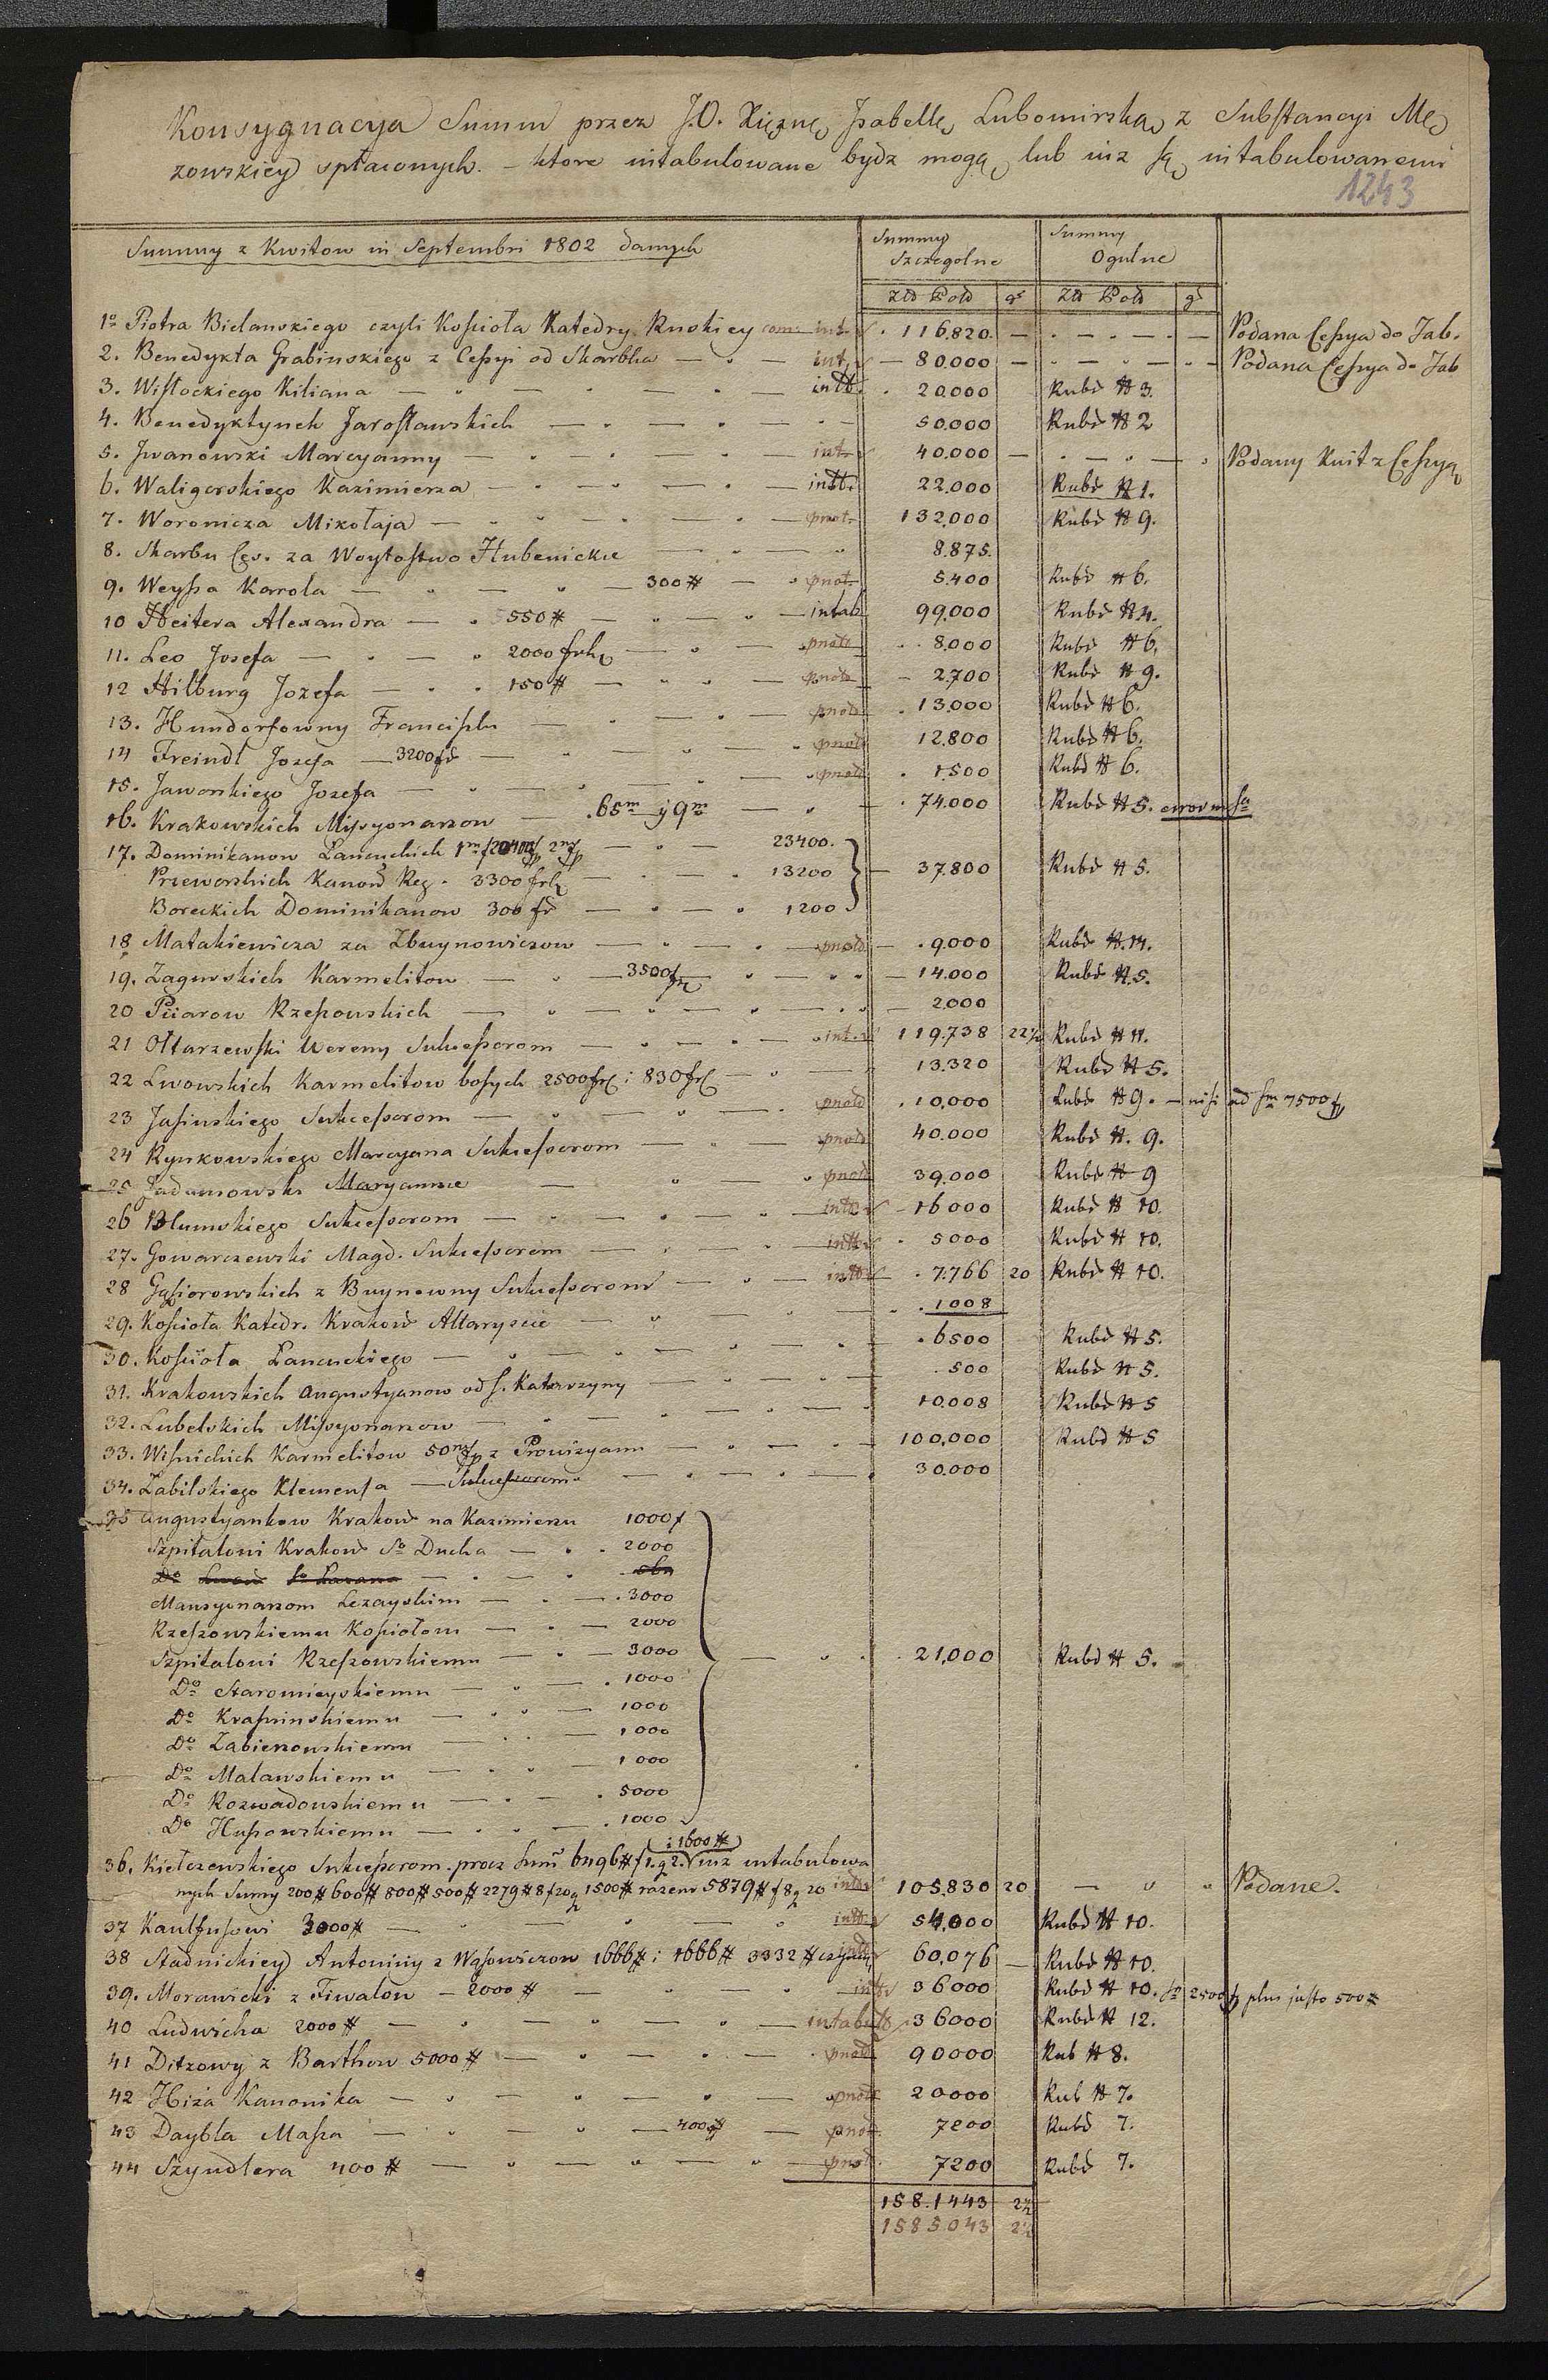 Konsygnacya Summ przez J.O. Xiężnę Jzabellę Lubomirską z Substancyi Mę
zowskiey spłaconych. – ktore intabulowane bydz mogą lub iuz są intabulowanemi
1243
Summy z Kwitow in Septembri 1802 danych
Summy Szczegolne Summy Ogulne
Zło Pold gr Zło Pold gr
1o Piotra Bielanskiego czyli Kościoła Katedry Ruskiey com int. 116.820 – Podana Cessya do Tab.
2. Benedykta Grabinskiego z Cessyi od Skarbka int. 80.000 – Podana Cessya do Tab
3. Wisłockiego Kiliana intt. 20.000 Rubd # 3.
4. Benedyktynek Jarosławskich 50.000 Rubd # 2
5. Jwanowski Marcyanny int. 40.000 – Podany Kwit z Cessyą
6. Waligorskiego Kazimierza intt. 22.000 Rubd # 1.
7. Woronicza Mikołaja pnot. 132.000 Rubd # 9.
8. Skarbu Ces. za Woytostwo Hubenickie 8.875.
9. Weyssa Karola 300 # pnot. 5.400 Rubd # 6.
10 Heitera Alexandra 5550 # intab 99.000 Rubd # 4.
11. Leo Josefa 2000 frh pnot 8.000 Rubd # 6.
12 Hilburg Jozefa 150 # pnot 2.700 Rubd # 9.
13. Hundorfowny Franciszki pnot 13.000 Rubd # 6.
14 Freindl Jozefa 3200 fr pnot 12.800 Rubd # 6.
15. Jaworskiego Jozefa pnot 1.500 Rubd # 6.
16. Krakowskich Missyonarzow 65m y 9m 74.000 Rubd # 5. error in sa
17. Dominikanow Łancuckich 23400.
Przeworskich Kanond Reg. 3300 frh 13200 37.800 Rubd # 5.
Boreckich Dominikanow 300 fr 1200
18 Matakiewicza za Zbuynowiczow pnot 9.000 Rubd #. 14.
19. Zagurskich Karmelitow 3500 14.000 Rubd #. 5.
20 Piiarow Rzeszowskich 2.000
21 Ołtarzewski Wereny Sukcessorom int. 119.738 22½ Rubd # 11.
22 Lwowskich Karmelitow bosych 2500 fr i 830 fr 13.320 Rubd # 5.
23 Jasinskiego Sukcessorom pnot 10.000 Rubd # 9. – nisi ad sm 7500
24 Rynkowskiego Marcyana Sukcessorom pnot 40.000 Rubd #. 9.
25 Jadamowski Maryannie pnot 39.000 Rubd # 9
26 Blumskiego Sukcessorom intt. 16000 Rubd # 10.
27. Gowarczewski Magd. Sukcessorom intt. 5000 Rubd # 10.
28 Gąsiorowskich z Buynowny Sukcessorom intt. 7.766 20 Rubd # 10.
29. Kościoła Katedr. Krakowd Altaryscie 1008
30. Kościoła Łancuckiego 6500 Rubd # 5.
31. Krakowskich Augustyanow od S. Katarzyny 500 Rubd # 5.
32. Lubelskich Missyonarzow 10.008 Rubd # 5
33. Wisnickich Karmelitow 50 z Prowizyami 100,000 Rubd # 5
34. Zabilskiego Klemensa – Sukcessorom 30.000
35 Augustyankow Krakowd na Kazimierzu 1000
Szpitalowi Krakowd So Ducha 2000
Mansyonarzom Lezayskim 3000
Rzeszowskiemu Kosciołowi 2000
Szpitalowi Rzeszowskiemu 3000 21,000 Rubd # 5.
Do Staromieyskiemu 1000
Do Krasninskiemu 1000
Do Zabierzowskiemu 1000
Do Malawskiemu 1000
Do Rozwadowskiemu 5000
Do Hussowskiemu 1000
i 1600 #
36. Kiełczewskiego Sukcessorom. procz Sum 6496 # iuz intabulowa
nych Sumy 200 # 600 # 800 # 500 # 2279 # 8 f 20 g 1500 # razem 5879 # f 8 g 20 intt. 105.830 20 Podane.
37 Kaulfusowi 3000 # intt. 54,000 Rubd # 10.
38 Stadnickiey Antoniny z Wąsowiczow 1666 # i 1666 # 3332 # czynią 60,076 – Rubd # 10.
39. Morawicki z Fiwalow – 2000 # int 36000 Rubd # 10. sa 2500 plus justo 500 #
40 Ludwicka 2000 # intab 36000 Rubd # 12.
41 Ditzowy z Barthow 5000 # pnot 90000 Rub # 8.
42 Hiża Kanonika pnot 20000 Rub # 7.
43 Daybla Maxa 400 # pnot 7200 Rubd 7.
44 Szyndlera 400 # pnot 7200 Rubd 7.
158.1443 2½
1585.043 2½